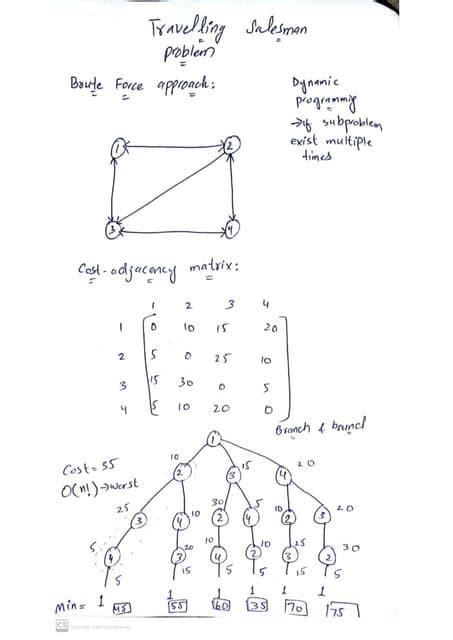 Travelling Salesman
problem
Brute Force approach:
Dynamic
programming
→if subproblem
exist multiple
times
1 2
3 4
Cost-adjacency matrix:
1 2 3 4
1 0 10 15 20
2 5 0 25 10
3 15 30 0 5
4 5 10 20 0
Branch & bound
1
Cost = 35
O(n!)→worst
10 15 20
2 3 4
25 10 30 5 10 20
3 4 2 4 2 3
5 20 10 10 25 30
4 3 4 2 3 2
5 15 5 5 15 5
Min = 1 1 1 1 1 1
45 55 60 35 70 75
CS